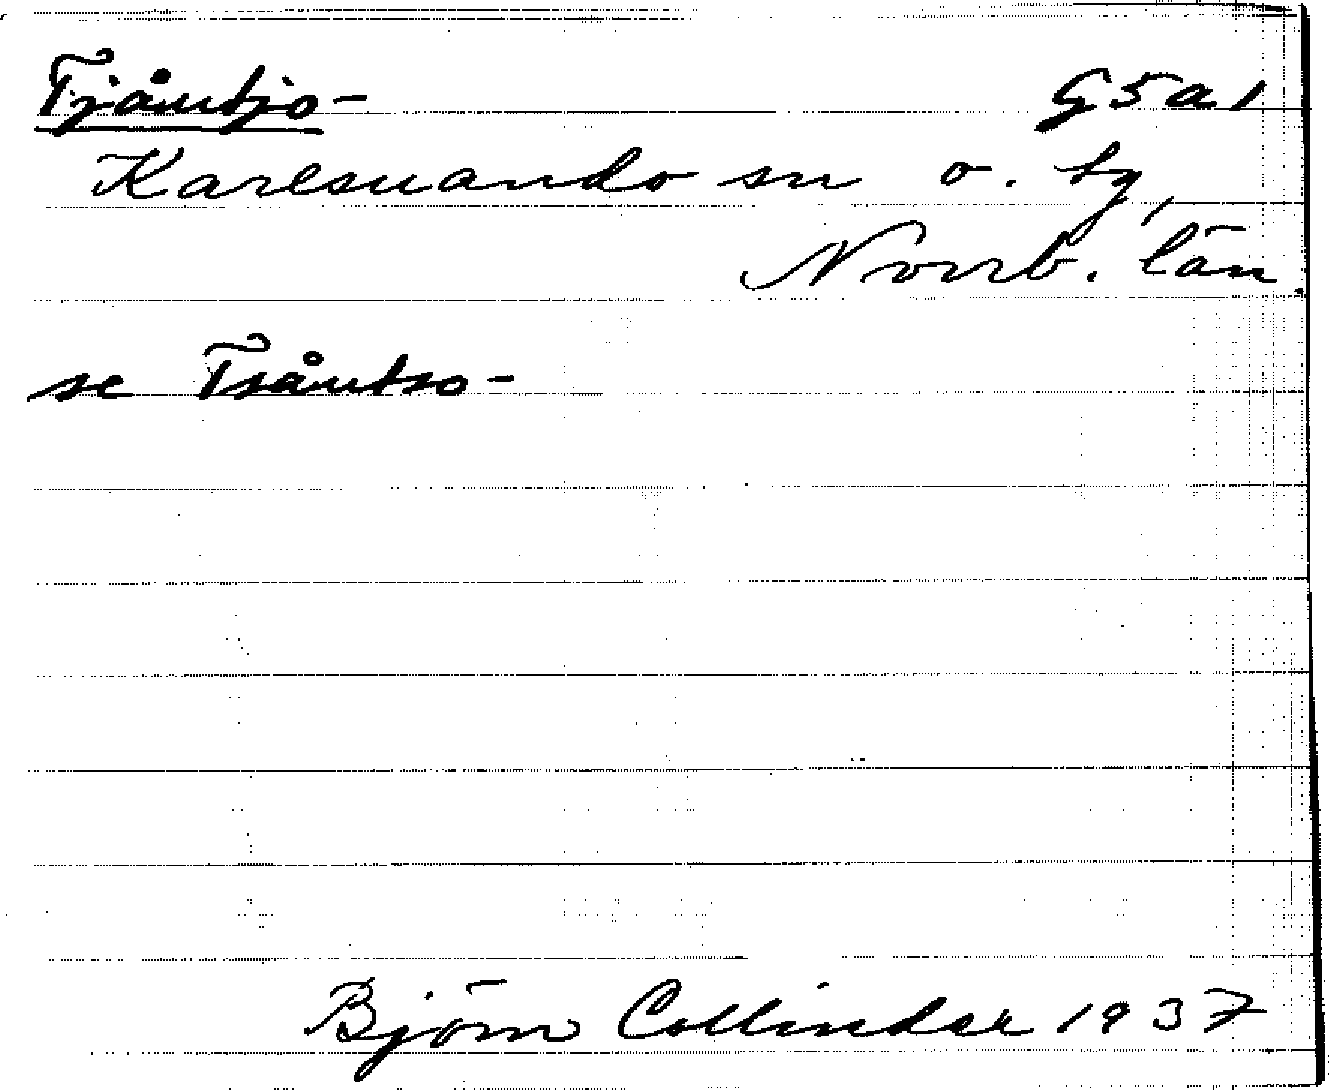 Tjåmtjo- G5a1
Karesuando sn o. tg,
Norrb. län.
se Tsåmtso-
Björn Collinder 1937